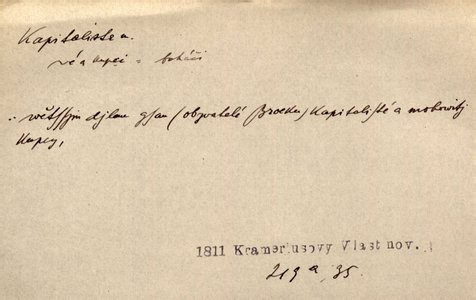 Kapitalista m.
vé a kupci = boháči
:. wětssjm djlem gsau (obywatelé Brocku) Kapitalisté a mohowitj
kupcy,
1811 Krameriusovy Vlast nov.
219 a, 35.